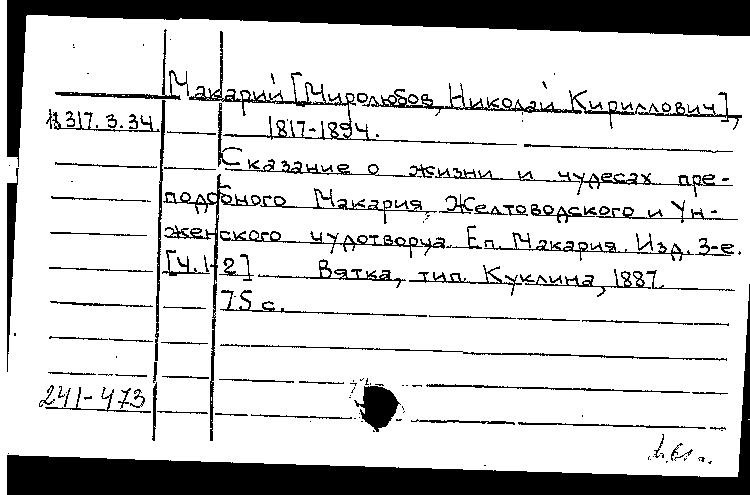 Макарий [Миролюбов, Николай Кириллович],
18.317.3.34. 1817-1894.
Сказание о жизни и чудесах пре-
подобного Макария, Желтоводского и Ун-
женского чудотворца. Еп. Макария. Изд. 3-е.
[Ч.1-2] Вятка, тип. Куклина, 1887.
75 с.
241-473